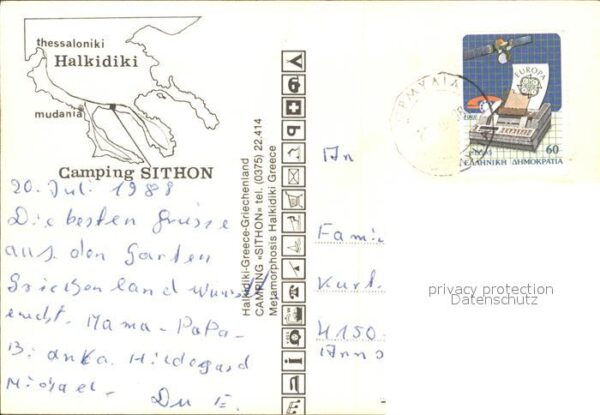 thessaloniki
Halkidiki
mudania
Camping SITHON
20. Juli 1988
Die besten Grüsse
aus dem Garten
Griechenland wünscht
euch. Mama-Papa-
Bianka. Hildegard
Michael.
Halkidiki-Greece-Griechenland
CAMPING «SITHON» tel. (0375) 22.414
Metamorphosis Halkidiki Greece
EUROPA
60
ΕΛΛΗΝΙΚΗ ΔΗΜΟΚΡΑΤΙΑ
An
Fami
Kurt.
4150
privacy protection
Datenschutz